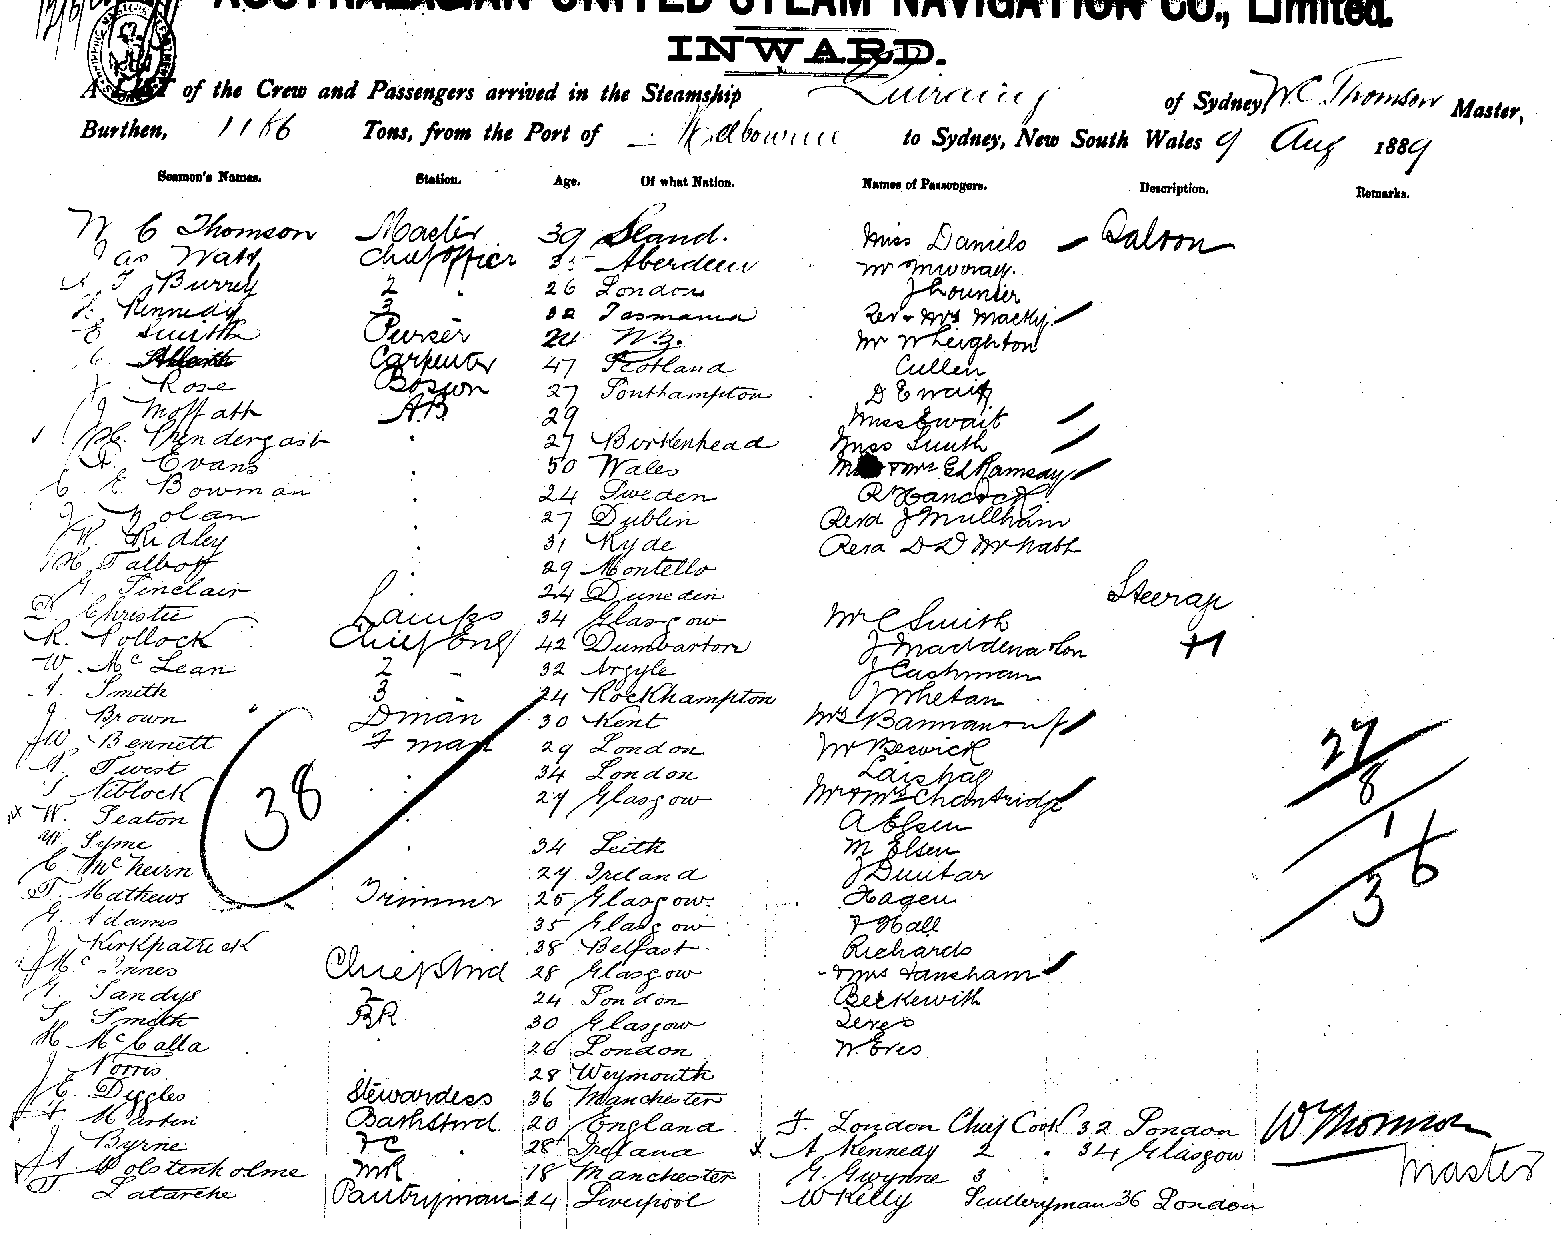 AUSTRALASIAN UNITED STEAM NAVIGATION CO., Limited.
INWARD.
A LIST of the Crew and Passengers arrived in the Steamship Quiraing of Sydney, W. C. Thomson Master,
Burthen, 1166 Tons, from the Port of Melbourne to Sydney, New South Wales 9 Aug 1889
Seamen's Names. Station. Age. Of what Nation. Names of Passengers. Description. Remarks.
W C Thomson Master 39 Miss Daniels Saloon
Jas Watt Chief Officer Aberdeen Mr Murray
Burrey 2 " 26 London J
Kennedy 3 32 Tasmania Rev & Mrs Macky
E Smith Purser 24 N Z. Mr W Leighton
C Carpenter 47 Scotland Cullen
J Rose Bosson 27 Southampton D Ewait
J Moffatt AB 29 Miss Ewait
Prendergast " 27 Birkenhead Miss Smith
Evans " 50 Wales & Mrs Ed Ramsay
C E Bowman " 24 Sweden R Hancock
J Nolan " 27 Dublin Revd J Mullham
W Ridley " 31 Ryde Revd D D
H Talbott 29 Montello
Sinclair 24 Dunedin Steerage
D Christie Lamps 34 Glasgow Mr C Smith
R. Pollock Chief Eng 42 Dumbarton J Madden & Son +1
W. McLean 2 " 32 Argyle J Cashman
A. Smith 3 " 24 Rockhampton J Whelan
J Brown Dman 30 Kent Mrs Bannan
JW Bennett F man 29 London Mr Beswick
Twist " 34 London
Niblock " 29 Glasgow Mr & Mrs Chantridge
W. Seaton A Elsen
W Syme " 34 Leith M Elsen
C McNeirn 29 Ireland J Dunbar
T. Mathews Trimmer 25 Glasgow Hagen
G. Adams 35 Glasgow F Hall
J Kirkpatrick 38 Belfast Richards
J McInnes Chief Stwd 28 Glasgow & Mrs Hansham
G Sandys 2 24 London Beckewith
S Smith BR 30 Glasgow
H McCalla 26 London W. Eves
J Norris 28 Weymouth
E. Diggles Stewardess 36 Manchester
F Martin Bathstwd 20 England F. London Chief Cook 32 London W Thomson
J Byrne FC 28 Ireland A Kennedy 2 " 34 Glasgow
Wolstenholme MR 18 Manchester G. Gwynne 3 Master
Latarche Pantryman 24 Liverpool W Kelly Sculleryman 36 London
38
27
8
1
36